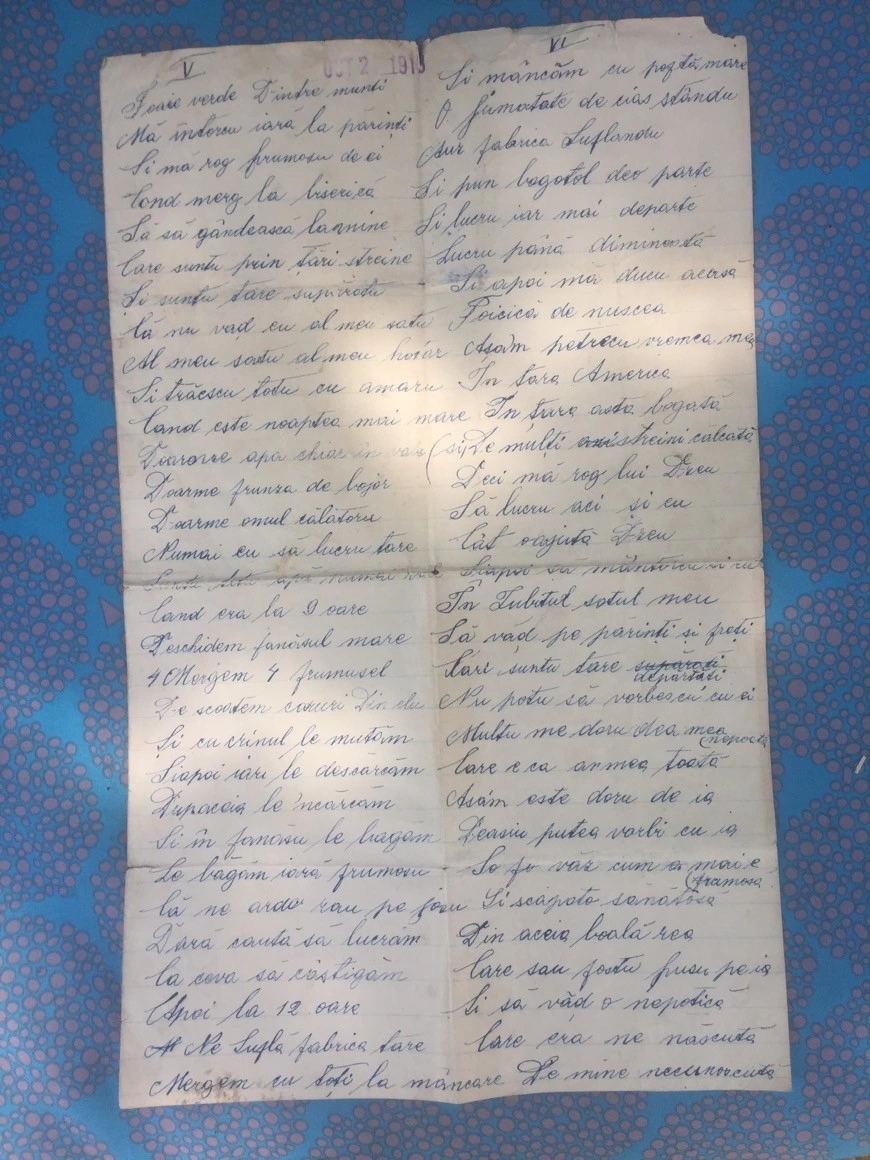 V
OCT 2 191
Foaie verde Dintre munti
Mă întorcu iară la părinti
Si mă rog frumosu de ei
Cond merg la biserică
Să să gândească lamine
Care suntu prin țări streine
Si suntu tare supăratu
Că nu văd eu al meu satu
Al meu satu al meu hotar
Si trăescu totu cu amaru
Cand este noaptea mai mare
apa chiar în vale
Doarme frunza de bojor
Doarme omul călătoru
Numai eu să lucru tare
apă numai
Cand era la 9 oare
Deschidem fanăsul mare
4 Mergem 4 frumusel
De scoatem caruri Din elu
Și cu crinul le mutăm
Siapoi iari le descărcăm
Dupaceia le 'ncărcăm
Si în fanăsu le bagăm
Le băgăm iară frumosu
Că ne ardu rau pe josu
Dară caută să lucrăm
Ca ceva să căstigăm
Apoi la 12 oare
Ne Suflă fabrica tare
Mergem cu toți la măncare
VI
Si mâncăm cu poftă mare
O Jumatate de cias stăndu
Aur fabrica Suflandu
Si pun bogotol deo parte
Si lucru iar mai departe
Lucru până dimineată
Si apoi mă ducu acasă
Foicică de nuscea
Asăm petrecu vremea mea
In tara America
In țara asta bogată
(și De mulți streini călcată
Deci mă rog lui Dzeu
Să lucru aci și eu
Cât oajută Dzeu
Siapoi sa măntorcu si eu
În Iubitul satul meu
Să văd pe părinți și frați
Cari suntu tare supărati
depărtati
Nu potu să vorbescu cu ei
Multu me doru dea mea
(nepoată
Care e ca armea toată
Asăm este doru de ia
Deasiu putea vorbi cu ia
So văz cum a mai e
(frumosa
Si scapato sănătosa
Din aceia boală rea
Care sau fostu pusu pe ia
Si să văd o nepotică
Care era ne născută
De mine necunoscută